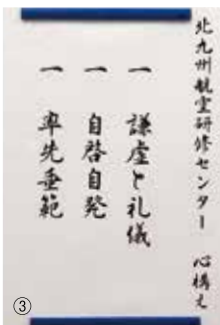 北九州航空研修センター 心構え
一 謙虚と礼儀
一 自啓自発
一 率先垂範
③